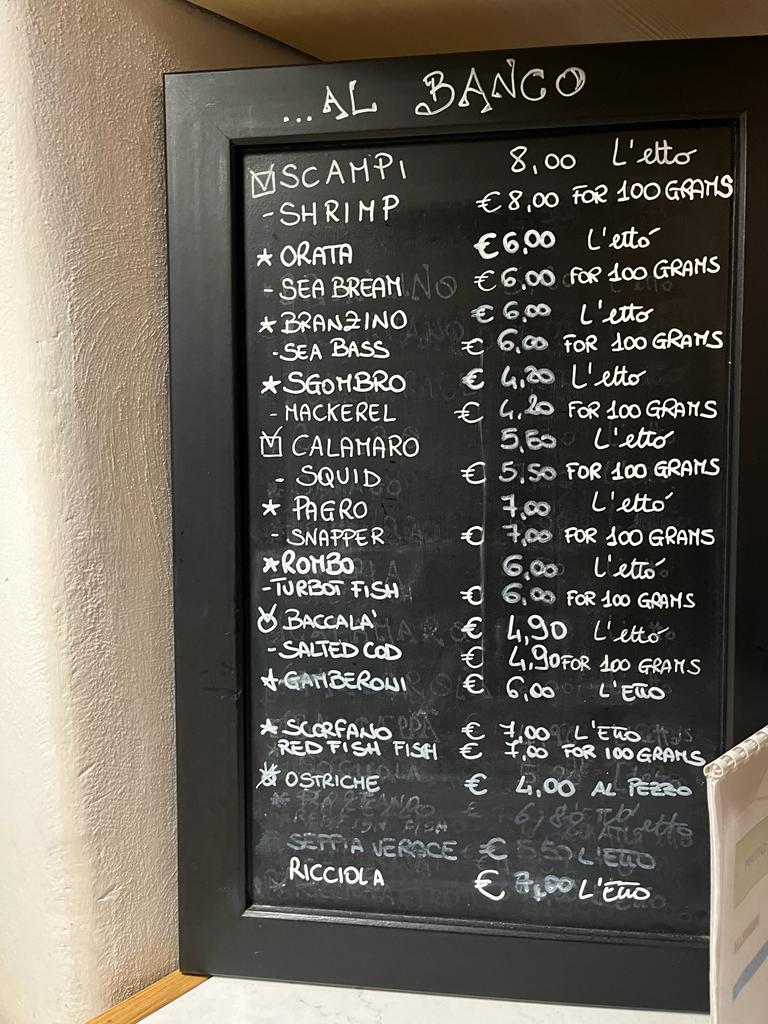 ...AL BANCO
SCAMPI 8,00 L'etto
-SHRIMP €8,00 FOR 100 GRAMS
★ ORATA €6,00 L'etto
- SEA BREAM €6,00 FOR 100 GRAMS
★ BRANZINO €6,00 L'etto
-SEA BASS € 6,00 FOR 100 GRAMS
★ SGOMBRO € 4,20 L'etto
- MACKEREL € 4,20 FOR 100 GRAMS
CALAMARO 5,50 L'etto
- SQUID € 5,50 FOR 100 GRAMS
★ PAGRO 7,00 L'etto
- SNAPPER € 7,00 FOR 100 GRAMS
★ ROMBO 6,00 L'etto
-TURBOT FISH € 6,00 FOR 100 GRAMS
BACCALA' € 4,90 L'etto
- SALTED COD € 4,90 FOR 100 GRAMS
★ GAMBERONI € 6,00 L'ETTO
★ SCORFANO € 7,00 L'ETTO
RED FISH FISH € 7,00 FOR 100 GRAMS
★ OSTRICHE € 4,00 AL PEZZO
SEPPIA VERACE € 5,50 L'ETTO
RICCIOLA € 7,00 L'ETTO